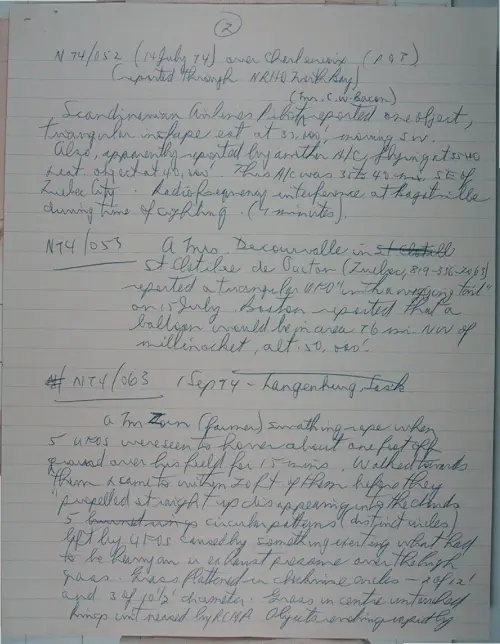 2
N74/052 (14 July 74) over Charlevoix (P.Q.T)
(reported through NRHQ North Bay)
(Mr. C.W. Bacon)
Scandinavian Airlines Pilot reported one object,
triangular in shape est at 33,000', moving SW.
Also, apparently reported by another A/C, flying at 35000
est. object at 40,000'. This A/C was 35 to 40 mi. SE of
Quebec City. Radio frequency interference at Bagotville
during time of sighting. (7 minutes).
N74/053 A Mrs. Decourvalle in
St Clotilde de Horton (Quebec, 819-336-2063)
reported a triangular UFO "with a wagging tail"
on 15 July. Boston reported that a
balloon would be in area 76 mi NW of
Millinocket, alt. 50,000'.
N74/063 1 Sep 74 - Langenburg, Sask
a Mr (farmer) swathing rape when
5 UFOS were seen to hover about one foot off
ground over his field for 15 mins. Walked towards
them & came to within 20 ft of them before they
"propelled straight up disappearing into the clouds
5 circular patterns (distinct circles)
left by UFOS caused by something exerting what had
to be heavy air or exhaust pressure over the high
grass. Grass flattened in clockwise circles - 2 of 12'
and 3 of 10½' diameter. Grass in centre untouched
Rings witnessed by RCMP. Objects revolving rapidly